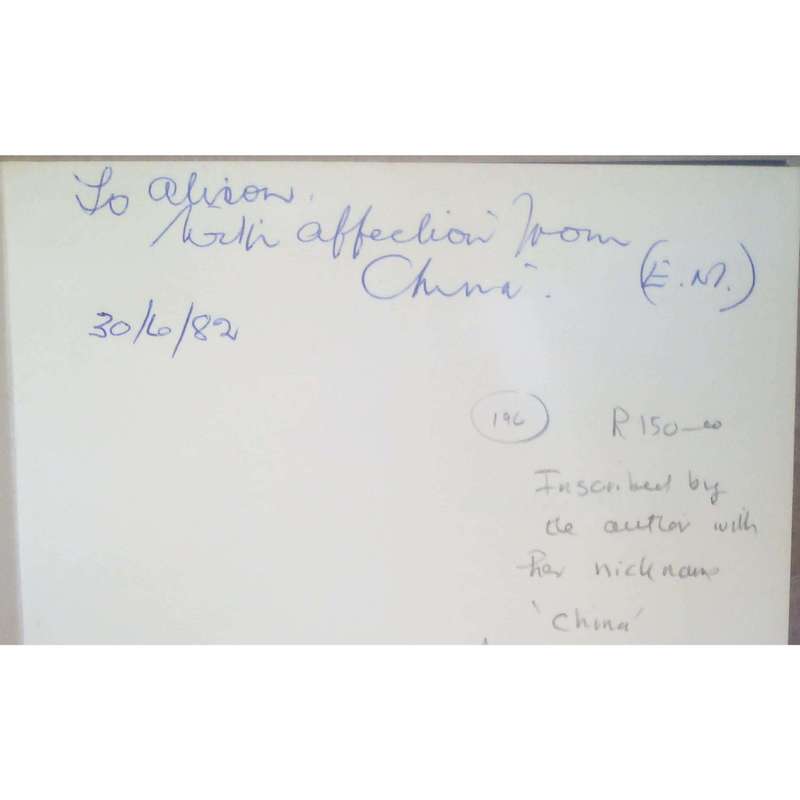 To Alison.
With affection from
China. (E.M.)
30/6/82
196 R150-00
Inscribed by
the author with
her nickname
'China'